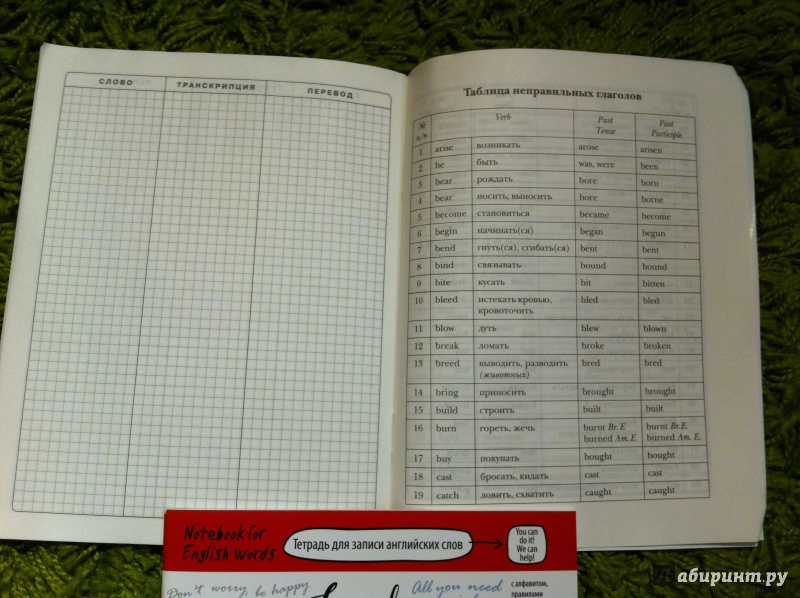 СЛОВО ТРАНСКРИПЦИЯ ПЕРЕВОД
Таблица неправильных глаголов
№ п/п Verb Past Tense Past Participle
1 arise возникать arose arisen
2 be быть was, were been
3 bear рождать bore born
4 bear носить, выносить bore borne
5 become становиться became become
6 begin начинать(ся) began begun
7 bend гнуть(ся), сгибать(ся) bent bent
8 bind связывать bound bound
9 bite кусать bit bitten
10 bleed истекать кровью, bled bled
кровоточить
11 blow дуть blew blown
12 break ломать broke broken
13 breed выводить, разводить bred bred
(животных)
14 bring приносить brought brought
15 build строить built built
16 burn гореть, жечь burnt Br. E burnt Br. E.
burned Am. E burned Am. E.
17 buy покупать bought bought
18 cast бросать, кидать cast cast
19 catch ловить, схватить caught caught
Notebook for
English Words
Тетрадь для записи английских слов
You can
do it!
We can
help!
Don't worry, be happy
All you need
с алфавитом,
правилами
Лабиринт.ру